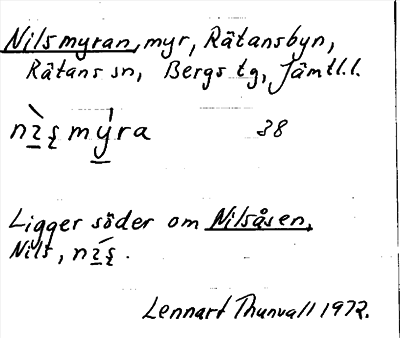 Nilsmyran, myr, Rätansbyn,
Rätans sn, Bergs tg, Jämtl.l.
mýra 38
Ligger söder om Nilsåsen.
Nils,
Lennart Thunvall 1972.